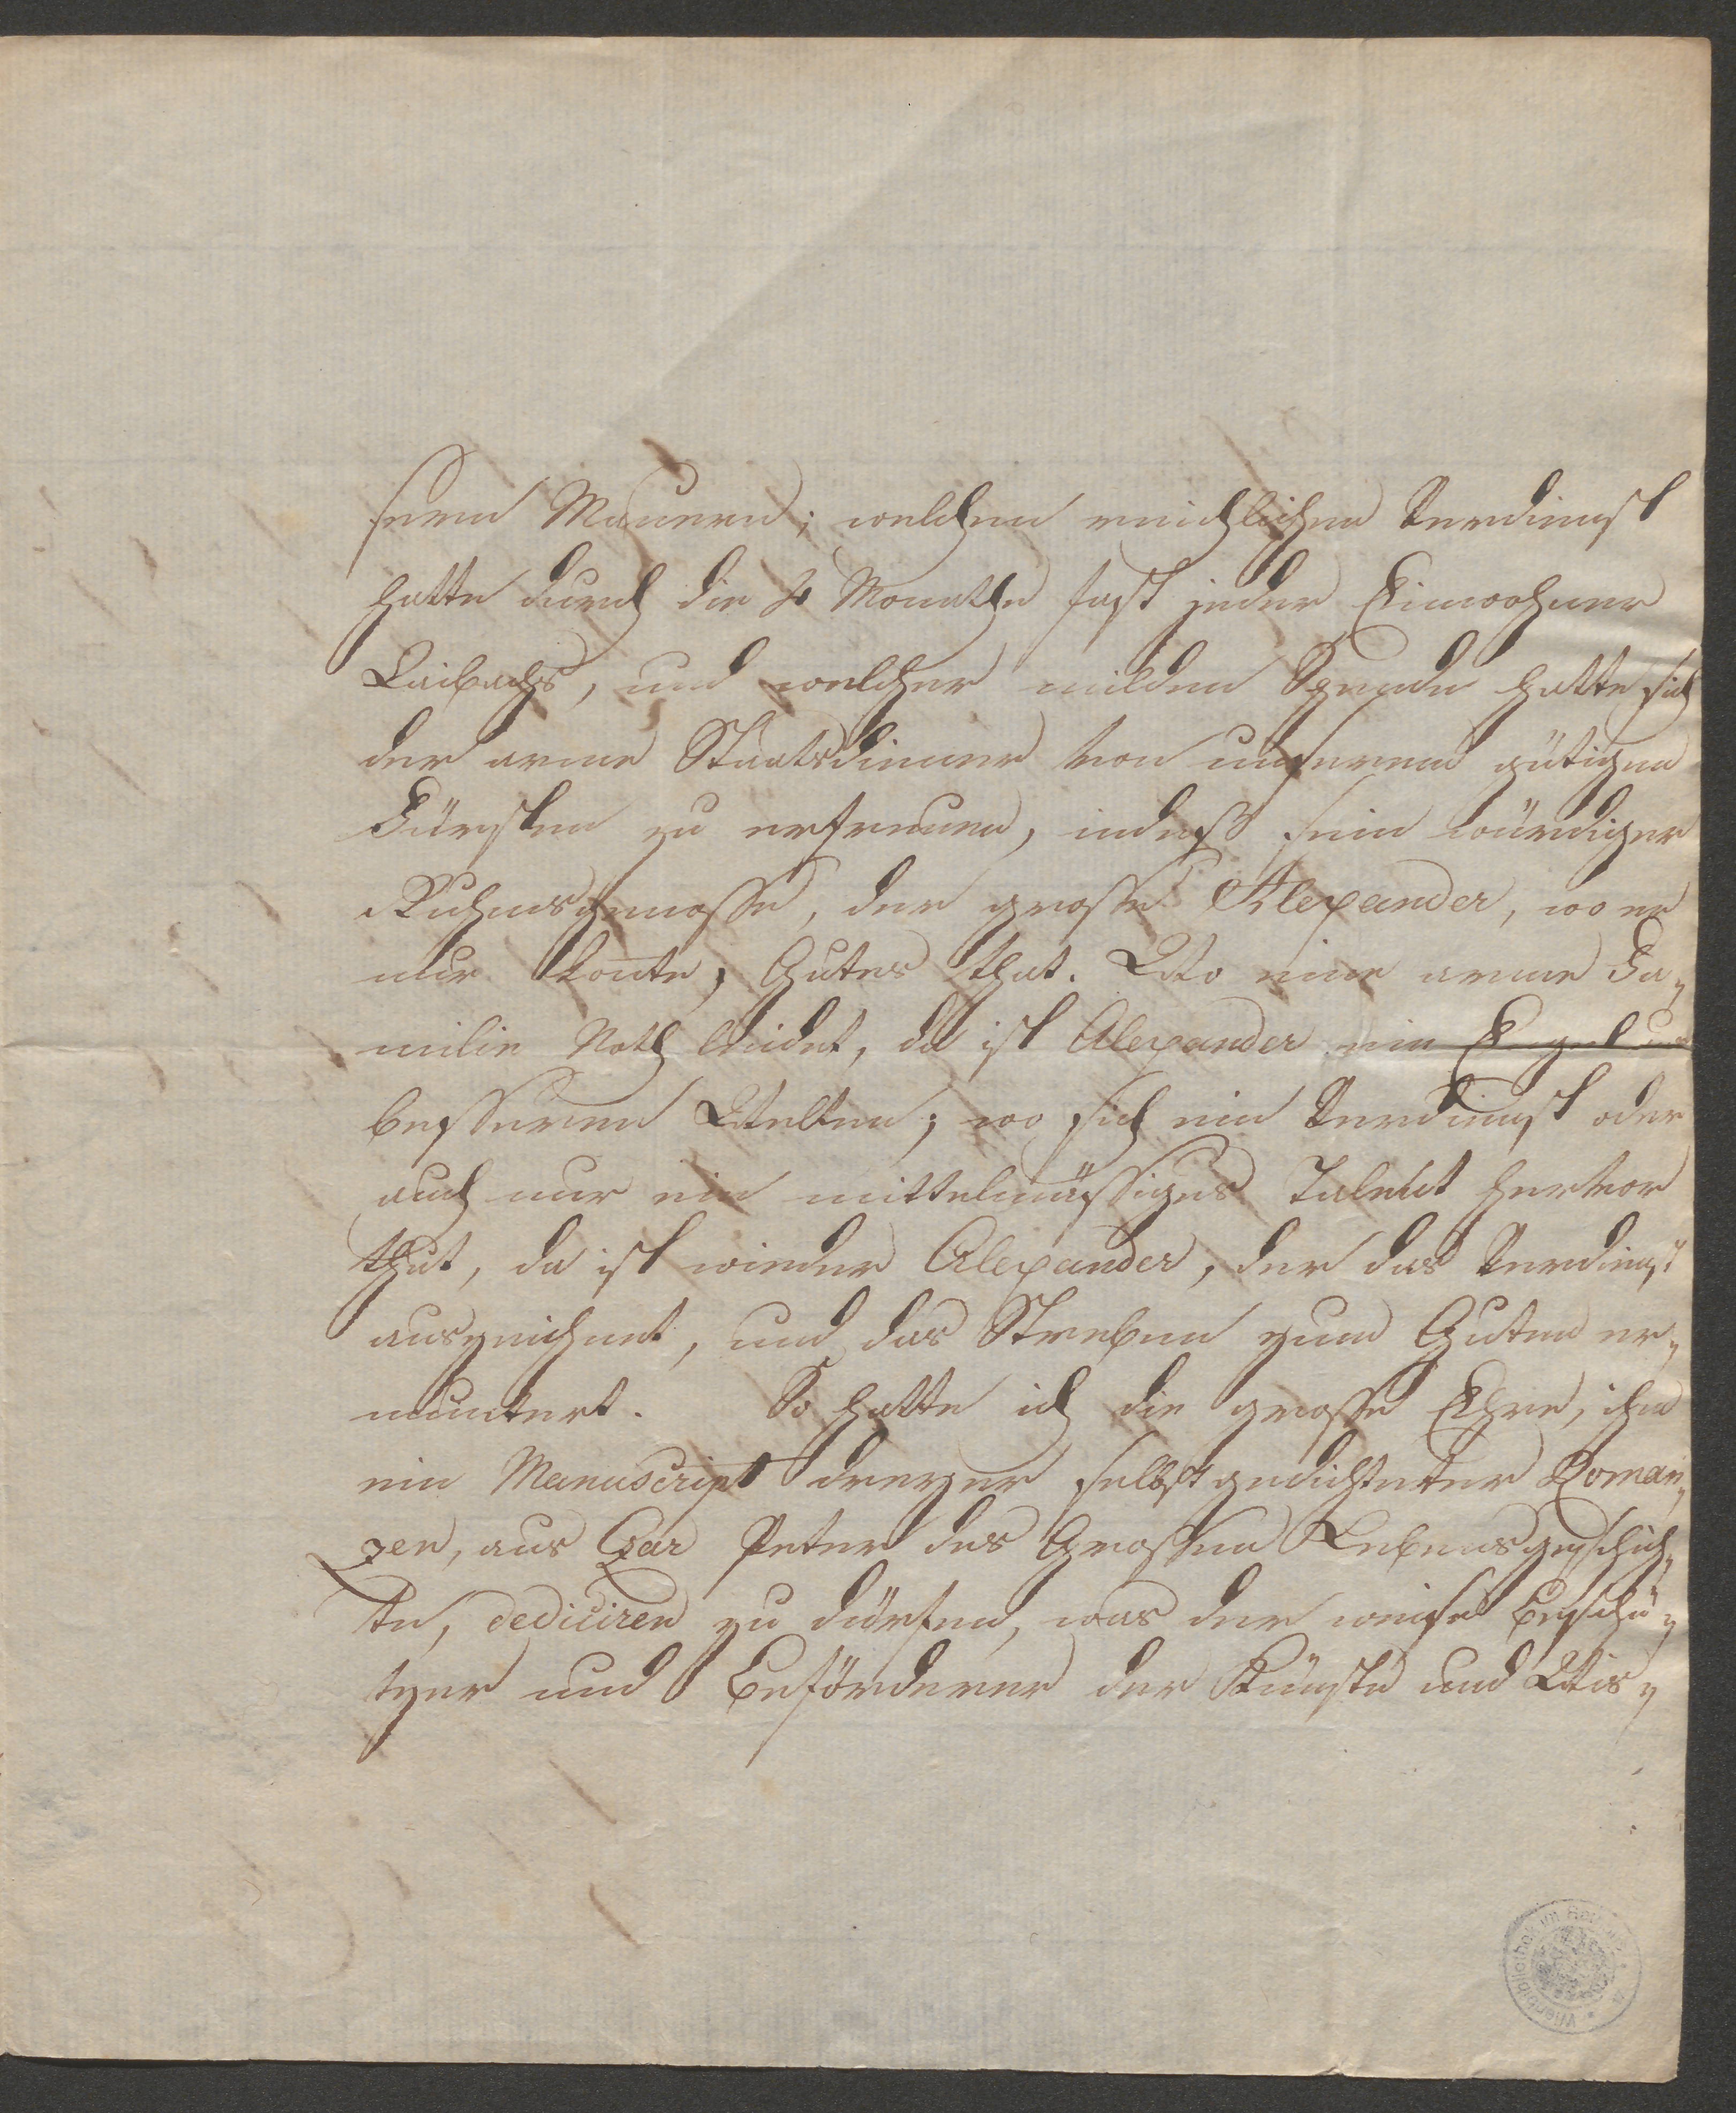 sern Mauern; welchen reichlichen Verdienst
hatte durch die 4 Monathe fast jeder Einwohner
Laibachs, und welcher milden Spende hatte sich
der arme Staatsdiener von unserem gütigen
Fürsten zu erfreuen, indeß sein würdiger
Ruhmsgenosse, der grosse Alexander, wo er
nur konte, Gutes that. Wo eine arme Fa-
milie Noth leidet, da ist Alexander ein Engel aus
besseren Welten; wo sich ein Verdienst oder
auch nur ein mittelmässiges Talent hervor
thut, da ist wieder Alexander, der das Verdienst
auszeichnet, und das Streben zum Guten er-
muntert. So hatte ich die grosse Ehre, ihm
ein Manuscript dreyer selbstgedichteter Roman-
zen, aus Czar Peter des Grossen Lebensgeschich-
te, dediciren zu dürfen, was der weise Beschü-
tzer und Beförderer der Künste und Wis-